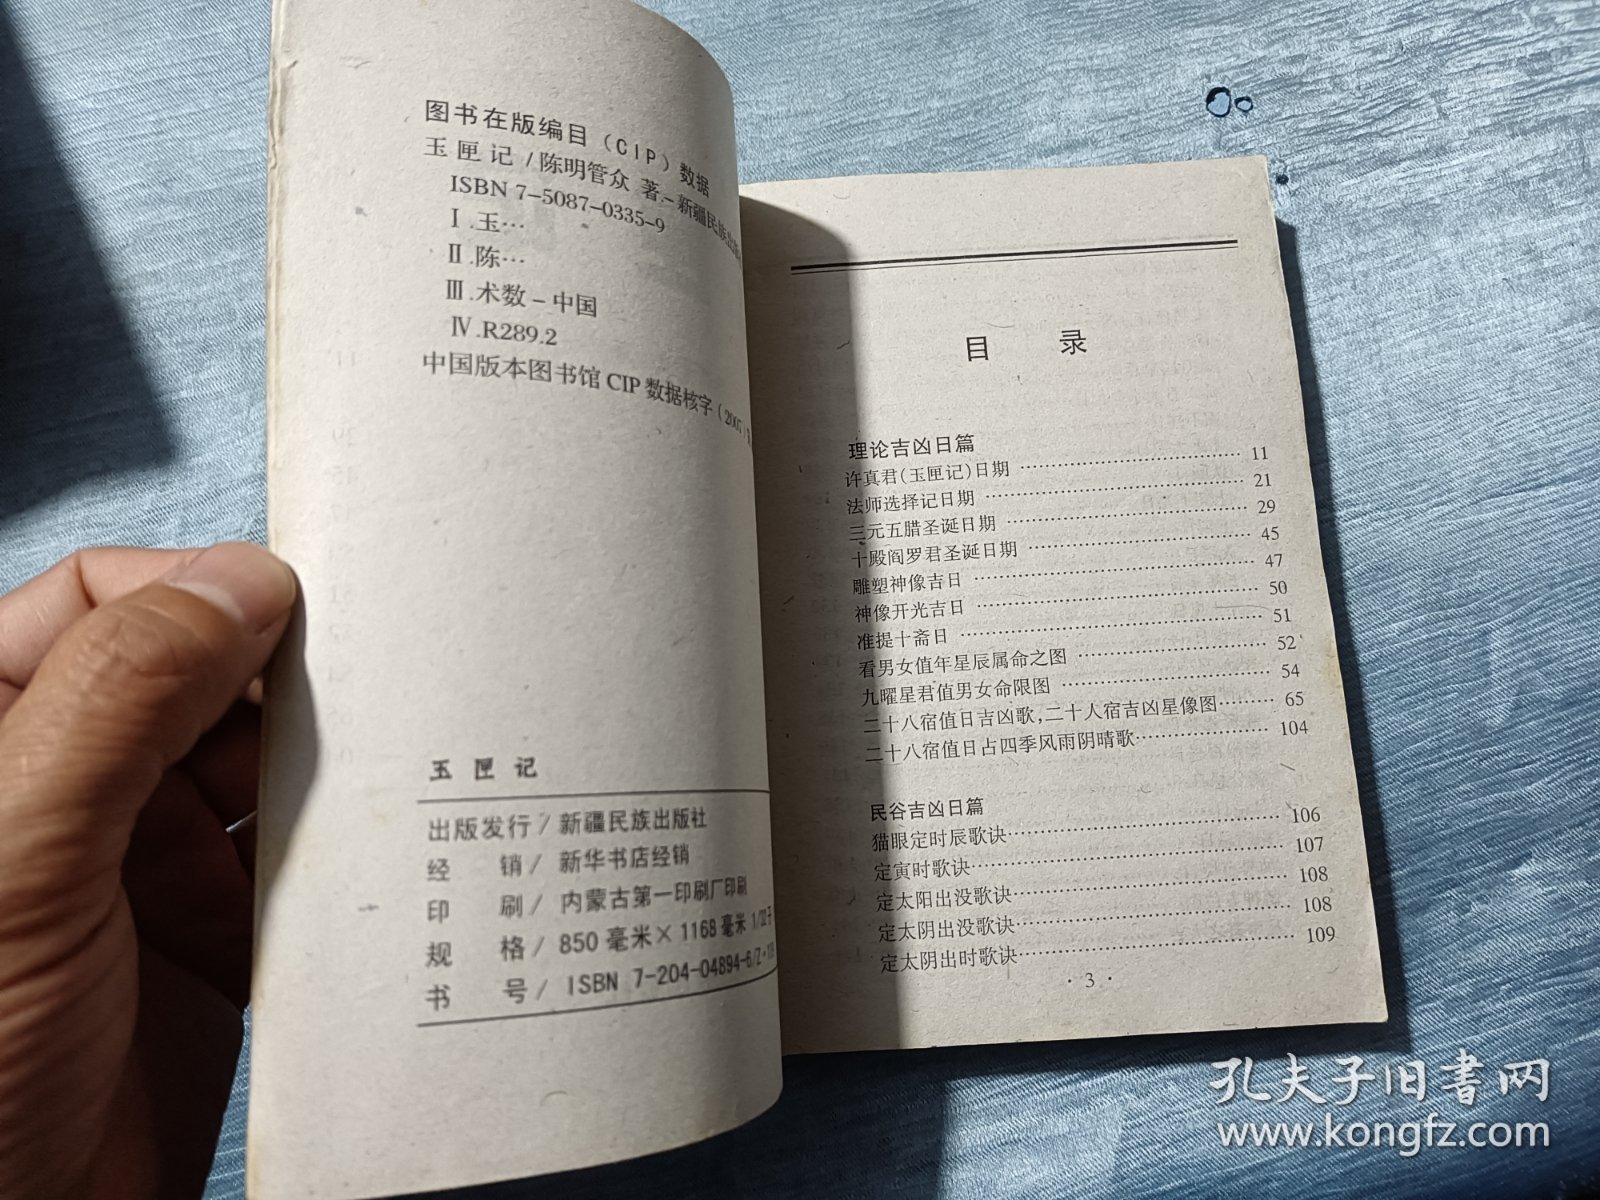 图书在版编目（CIP）数据
玉匣记/陈明管众 著.–新疆民族出版
ISBN 7–5087–0335–9
Ⅰ.玉…
Ⅱ.陈…
Ⅲ.术数–中国
Ⅳ.R289.2
中国版本图书馆CIP数据核字（2007）
玉匣记
出版发行/新疆民族出版社
经　销/新华书店经销
印　刷/内蒙古第一印刷厂印刷
规　格/850毫米×1168毫米 1/32
书　号/ISBN 7-204-04894-6/Z·
目　录
理论吉凶日篇
许真君(玉匣记)日期 …… 11
法师选择记日期 …… 21
三元五腊圣诞日期 …… 29
十殿阎罗君圣诞日期 …… 45
雕塑神像吉日 …… 47
神像开光吉日 …… 50
准提十斋日 …… 51
看男女值年星辰属命之图 …… 52
九曜星君值男女命限图 …… 54
二十八宿值日吉凶歌,二十人宿吉凶星像图 …… 65
二十八宿值日占四季风雨阴晴歌 …… 104
民谷吉凶日篇
猫眼定时辰歌诀 …… 106
定寅时歌诀 …… 107
定太阳出没歌诀 …… 108
定太阴出没歌诀 …… 108
定太阴出时歌诀 …… 109
· 3 ·
孔夫子旧书网
www.kongfz.com